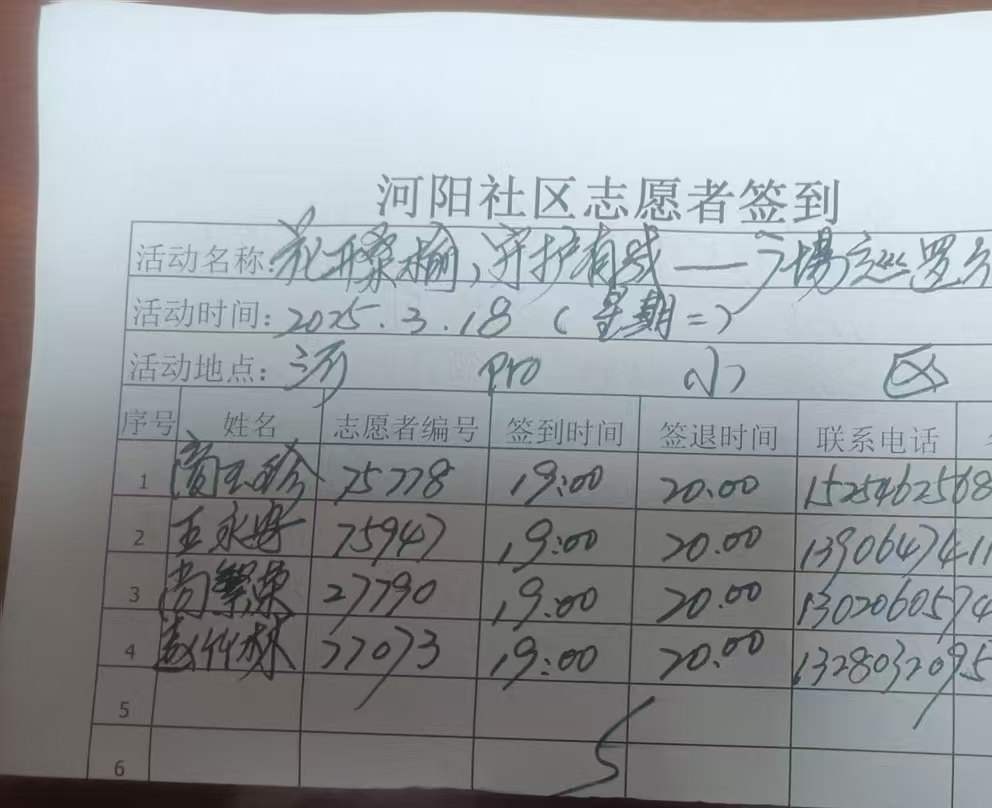 河阳社区志愿者签到
活动名称:花开桑榆、守护有我——广场
活动时间:2025.3.18(星期二)
活动地点:河 小区
序号 姓名 志愿者编号 签到时间 签退时间 联系电话
1 75778 19:00 20.00 1525462568
2 王永 75947 19:00 20.00 1390647411
3 尚繁荣 27790 19:00 20.00 1302060574
4 赵竹林 77073 19:00 20.00 1328032095
5
6